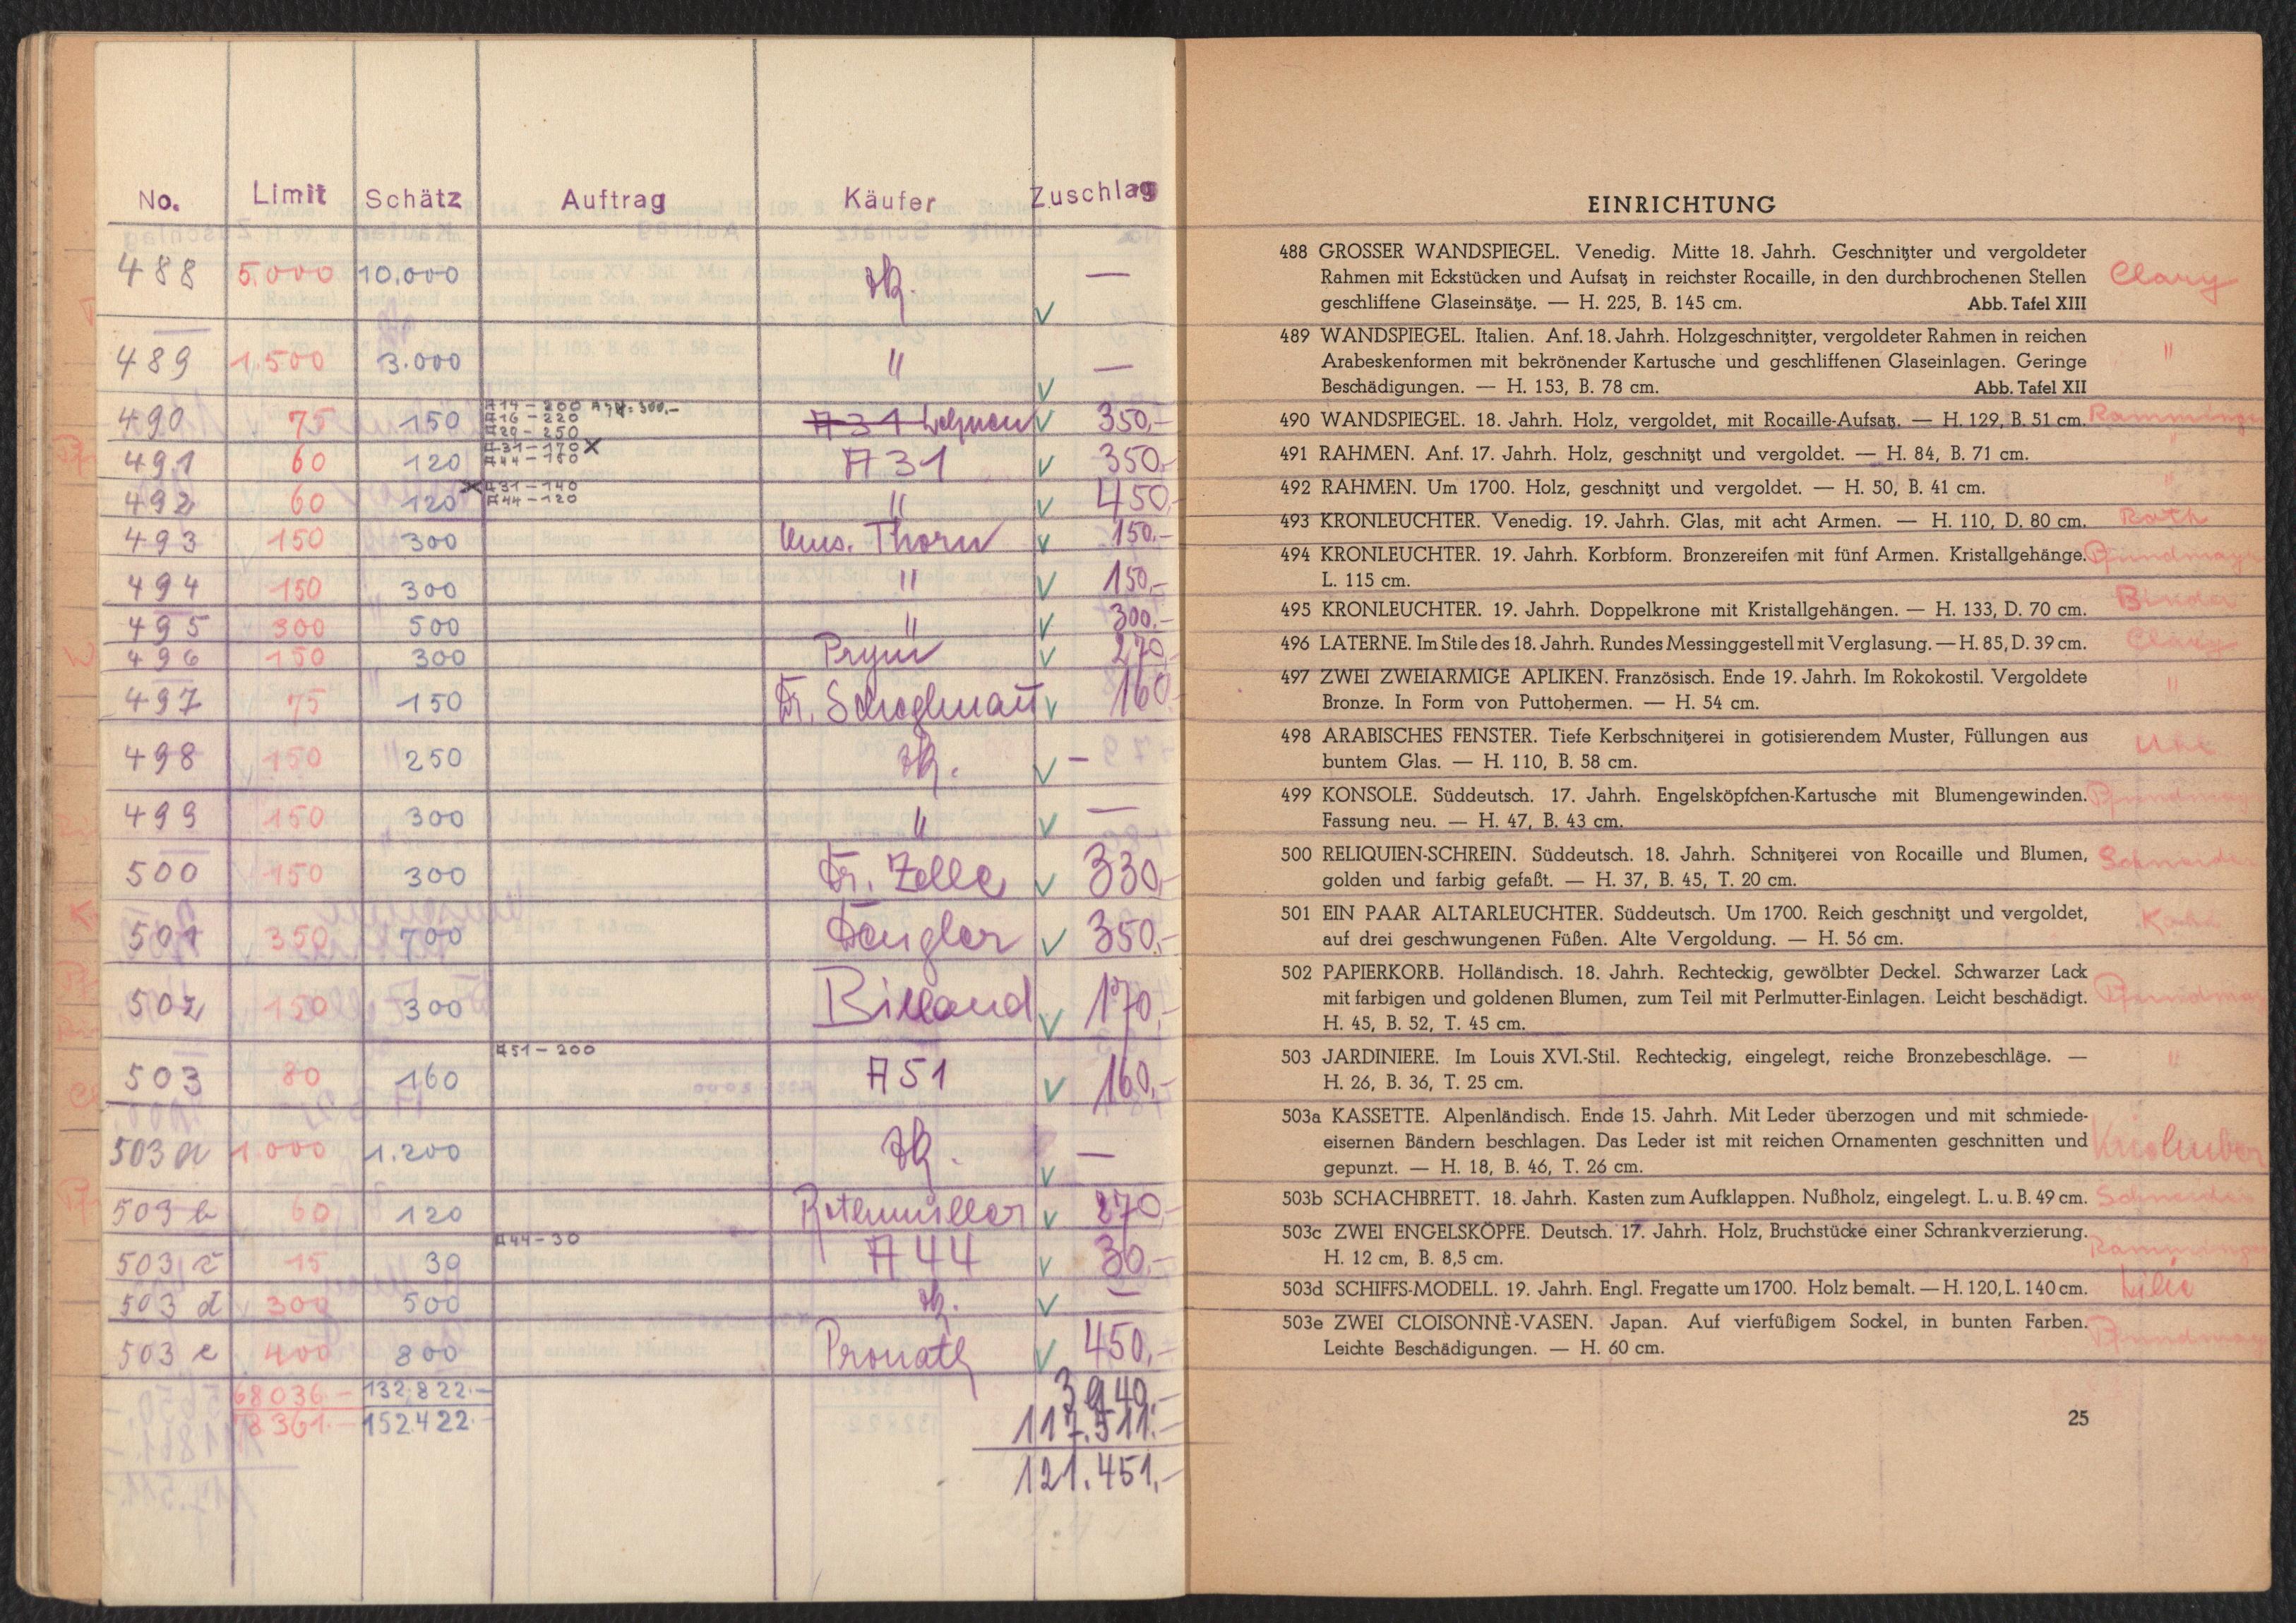 No. Limit Schätz Auftrag Käufer Zuschlag
488 5.000 10.000 —
489 1.500 3.000 " —
490 75 150 A14 – 200 A 31 350,-
A16 – 220
A20 – 250
491 60 120 A31 – 170 X A 31 350,-
A44 – 160
492 60 120 X A31 – 140 " 450,-
A44 – 120
493 150 300 Thorn 150,-
494 150 300 " 150,-
495 300 500 " 300,-
496 150 300 Prym 270,-
497 75 150 160,-
498 150 250 —
499 150 300 " —
500 150 300 Dr. Zelle 330,-
501 350 700 Dengler 350,-
502 150 300 Billand 170,-
503 80 160 A51 – 200 A 51 160,-
503 a 1.000 1.200 —
503 b 60 120 Rothmüller 270,-
503 c 15 30 A44 – 30 A 44 30,-
503 d 300 500 —
503 e 400 800 Pronath 450,-
68036.– 132.822.– 3940.–
78361.– 152.422.– 117.511.–
121.451,–
EINRICHTUNG
488 GROSSER WANDSPIEGEL. Venedig. Mitte 18. Jahrh. Geschnitzter und vergoldeter
Rahmen mit Eckstücken und Aufsatz in reichster Rocaille, in den durchbrochenen Stellen Clary
geschliffene Glaseinsätze. — H. 225, B. 145 cm. Abb. Tafel XIII
489 WANDSPIEGEL. Italien. Anf. 18. Jahrh. Holzgeschnitzter, vergoldeter Rahmen in reichen
Arabeskenformen mit bekrönender Kartusche und geschliffenen Glaseinlagen. Geringe "
Beschädigungen. — H. 153, B. 78 cm. Abb. Tafel XII
490 WANDSPIEGEL. 18. Jahrh. Holz, vergoldet, mit Rocaille-Aufsatz. — H. 129, B. 51 cm. Ramminger
491 RAHMEN. Anf. 17. Jahrh. Holz, geschnitzt und vergoldet. — H. 84, B. 71 cm. "
492 RAHMEN. Um 1700. Holz, geschnitzt und vergoldet. — H. 50, B. 41 cm. "
493 KRONLEUCHTER. Venedig. 19. Jahrh. Glas, mit acht Armen. — H. 110, D. 80 cm. Rath
494 KRONLEUCHTER. 19. Jahrh. Korbform. Bronzereifen mit fünf Armen. Kristallgehänge. Pfundmayr
L. 115 cm.
495 KRONLEUCHTER. 19. Jahrh. Doppelkrone mit Kristallgehängen. — H. 133, D. 70 cm. Binder
496 LATERNE. Im Stile des 18. Jahrh. Rundes Messinggestell mit Verglasung. — H. 85, D. 39 cm. Clary
497 ZWEI ZWEIARMIGE APLIKEN. Französisch. Ende 19. Jahrh. Im Rokokostil. Vergoldete "
Bronze. In Form von Puttohermen. — H. 54 cm.
498 ARABISCHES FENSTER. Tiefe Kerbschnitzerei in gotisierendem Muster, Füllungen aus
buntem Glas. — H. 110, B. 58 cm.
499 KONSOLE. Süddeutsch. 17. Jahrh. Engelsköpfchen-Kartusche mit Blumengewinden. Pfundmayr
Fassung neu. — H. 47, B. 43 cm.
500 RELIQUIEN-SCHREIN. Süddeutsch. 18. Jahrh. Schnitzerei von Rocaille und Blumen, Schneider
golden und farbig gefaßt. — H. 37, B. 45, T. 20 cm.
501 EIN PAAR ALTARLEUCHTER. Süddeutsch. Um 1700. Reich geschnitzt und vergoldet,
auf drei geschwungenen Füßen. Alte Vergoldung. — H. 56 cm.
502 PAPIERKORB. Holländisch. 18. Jahrh. Rechteckig, gewölbter Deckel. Schwarzer Lack
mit farbigen und goldenen Blumen, zum Teil mit Perlmutter-Einlagen. Leicht beschädigt. Pfundmayr
H. 45, B. 52, T. 45 cm.
503 JARDINIERE. Im Louis XVI.-Stil. Rechteckig, eingelegt, reiche Bronzebeschläge. — "
H. 26, B. 36, T. 25 cm.
503a KASSETTE. Alpenländisch. Ende 15. Jahrh. Mit Leder überzogen und mit schmiede-
eisernen Bändern beschlagen. Das Leder ist mit reichen Ornamenten geschnitten und
gepunzt. — H. 18, B. 46, T. 26 cm.
503b SCHACHBRETT. 18. Jahrh. Kasten zum Aufklappen. Nußholz, eingelegt. L. u. B. 49 cm. Schneider
503c ZWEI ENGELSKÖPFE. Deutsch. 17. Jahrh. Holz, Bruchstücke einer Schrankverzierung.
H. 12 cm, B. 8,5 cm. Ramminger
503d SCHIFFS-MODELL. 19. Jahrh. Engl. Fregatte um 1700. Holz bemalt. — H. 120, L. 140 cm.
503e ZWEI CLOISONNÈ-VASEN. Japan. Auf vierfüßigem Sockel, in bunten Farben. Pfundmayr
Leichte Beschädigungen. — H. 60 cm.
25